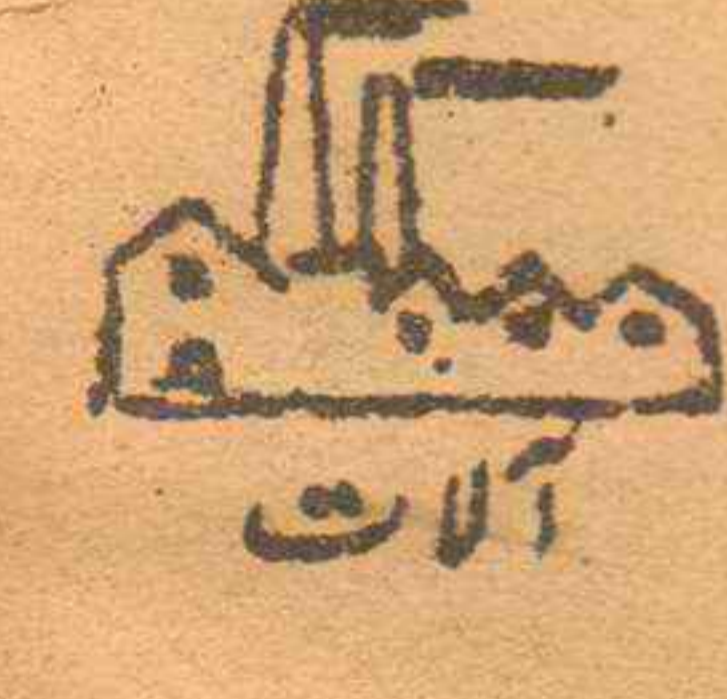 آلات